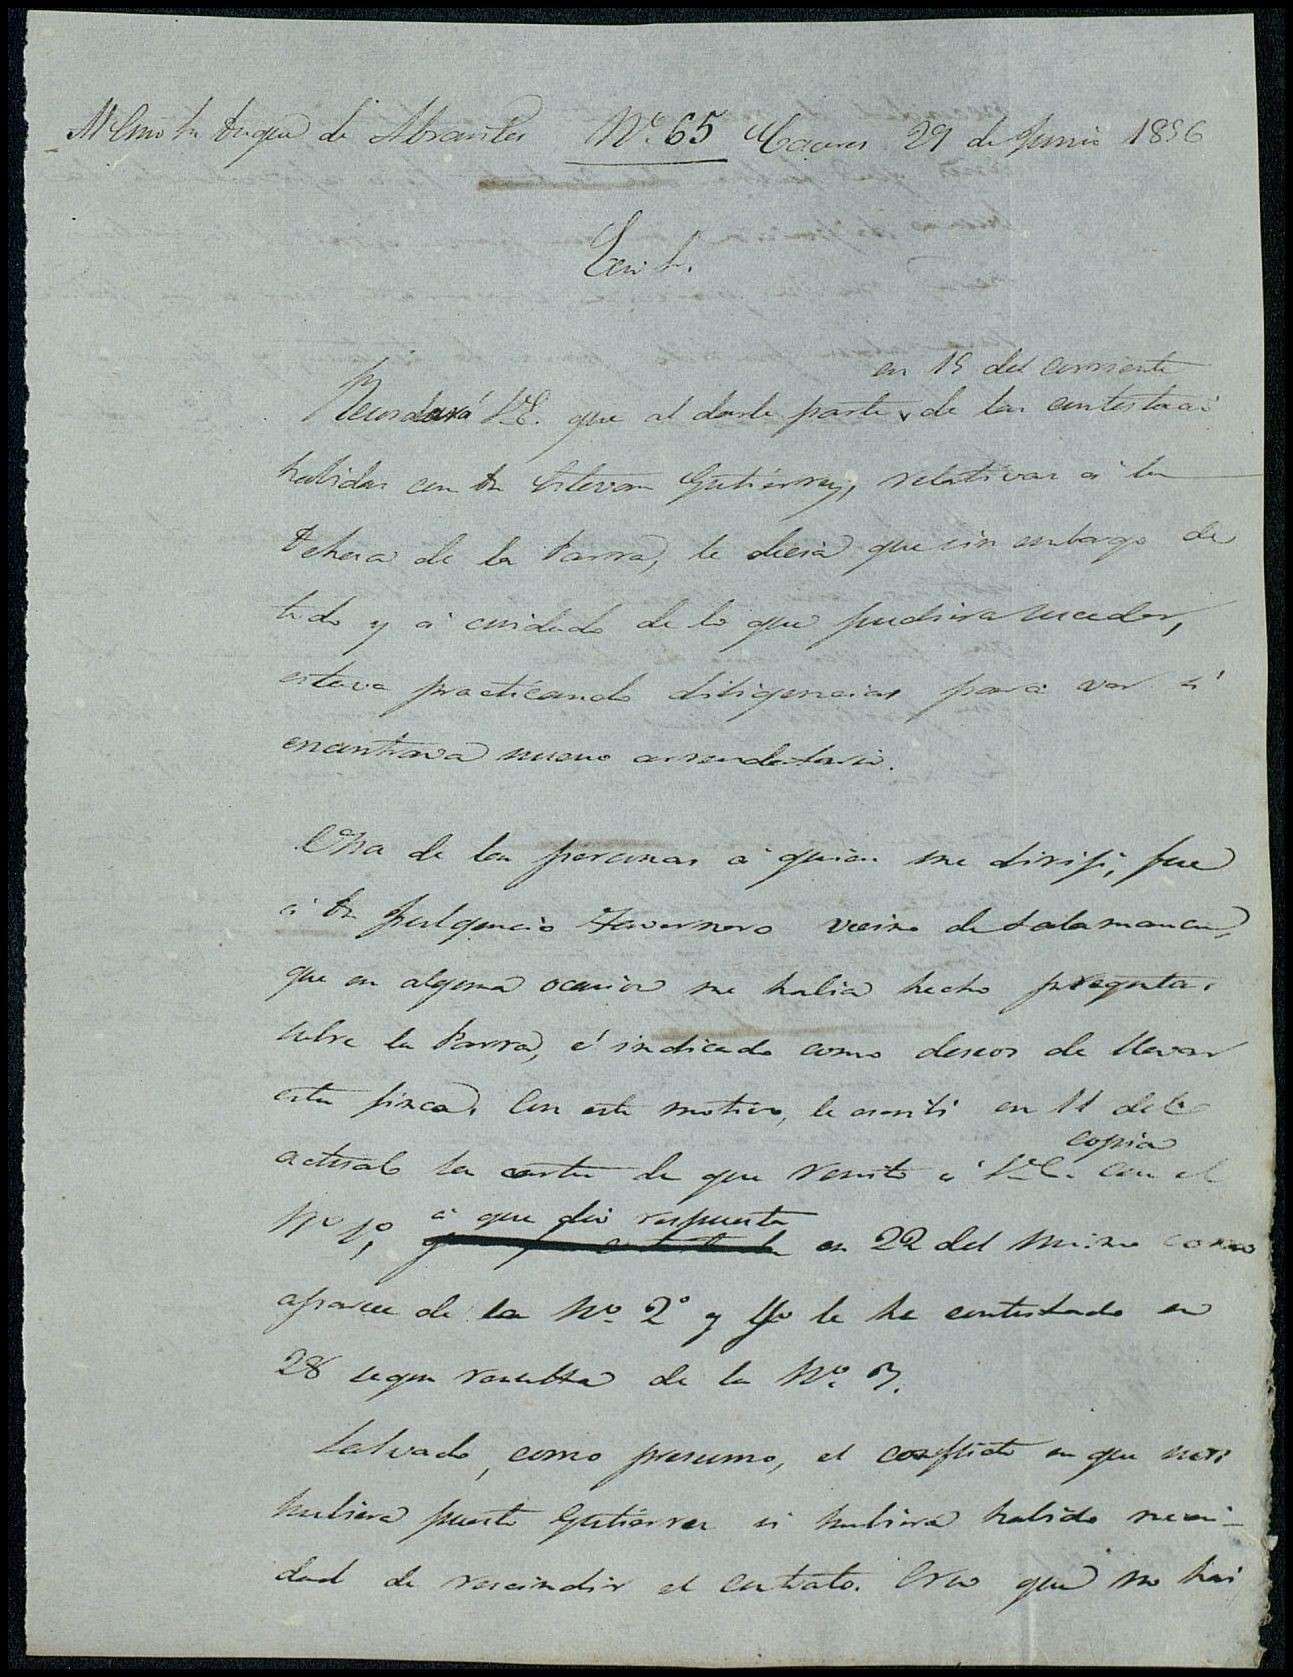 Al Exmo Sr Duque de Abrantes Nº 65 Cáceres 29 de Junio 1856
Exmo Sr.
en 15 del corriente
Recordará V.E. que al darle parte de las contestacs
habidas con Dn Estevan Gutierrez, relativas á la
Dehesa de la Parra, le decia que sin embargo de
todo y á cuidado de lo que pudiera suceder,
estava practicando diligencias para ver si
encontrava nuevo arrendatario.
Una de las personas á quien me dirijí, fue
á Dn Fulgencio Tavernero vecino de Salamanca,
que en alguna ocasion me habia hecho preguntas
sobre la Parra, é indicado como deseos de llevar
esta finca. Con este motivo, le escribí en 11 del
copia
actual la carta de que remito á V.E. con el
á que dió respuesta
Nº 1º, en 22 del mismo como
aparece de la Nº 2º y Yo le he contestado en
28 segun resulta de la Nº 3.
Salvado, como presumo, el conflicto en que nos
hubiera puesto Gutierrez si hubiera habido necesi-
dad de rescindir el contrato. Creo que no hai